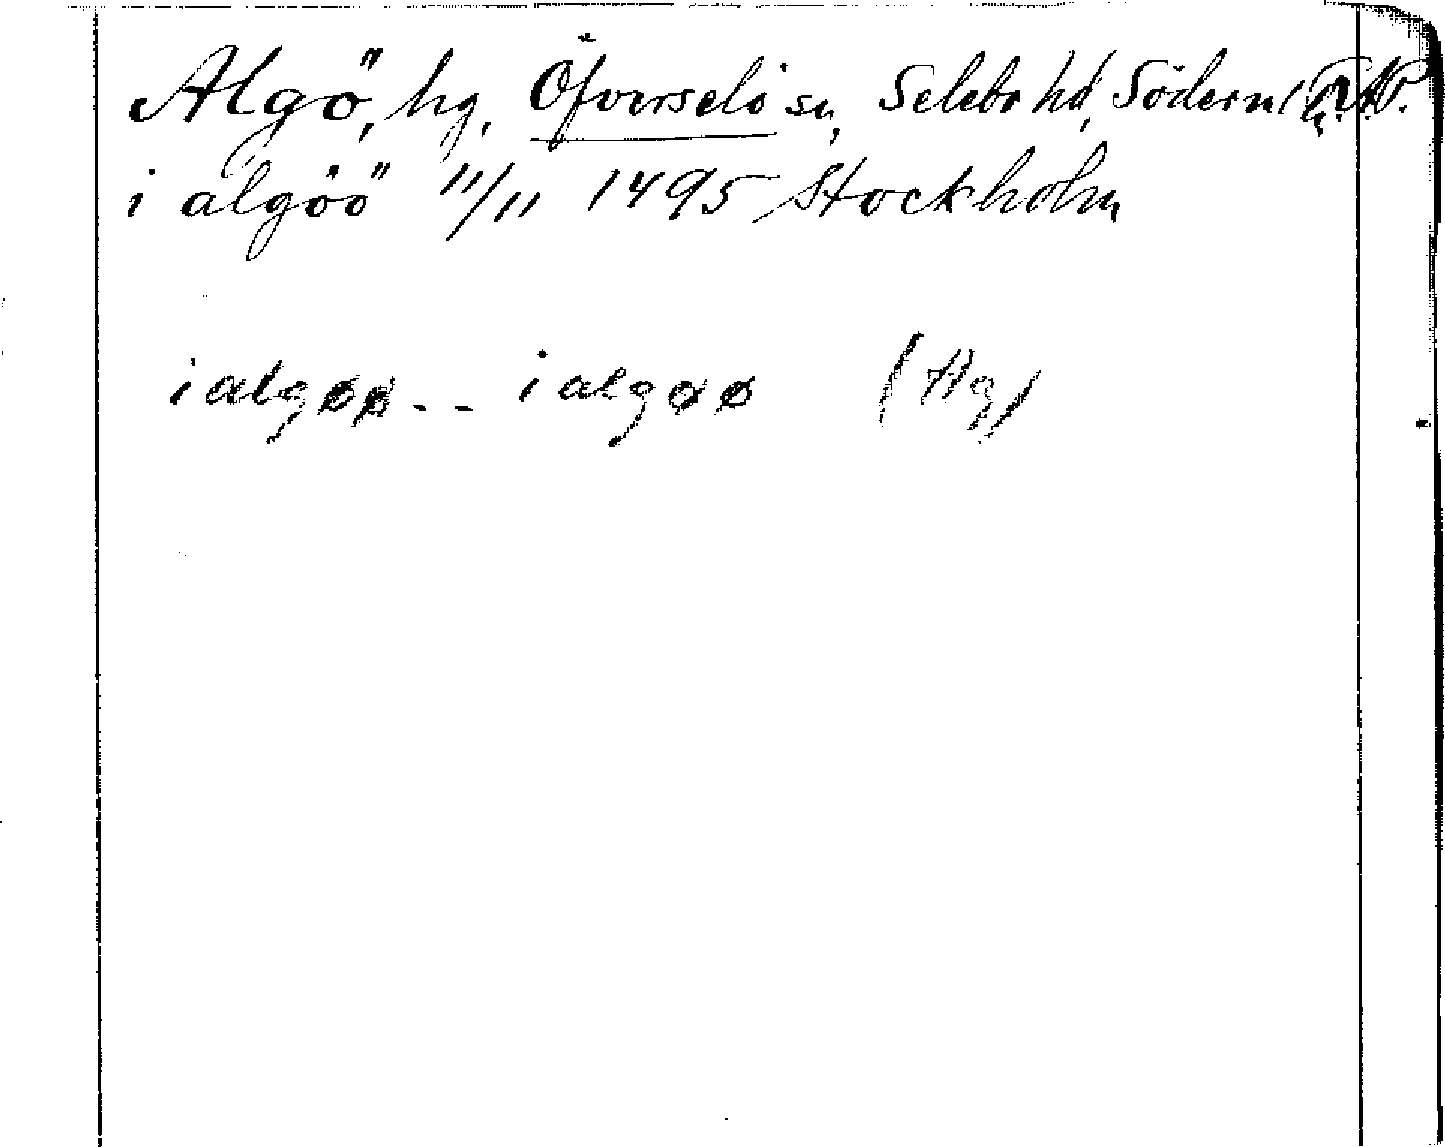 Algö, hg, Öfverselö sn, Selebo hd, Söderml
i algöö 11/11 1495 Stockholm
i algøø -- i algøø (Hg)